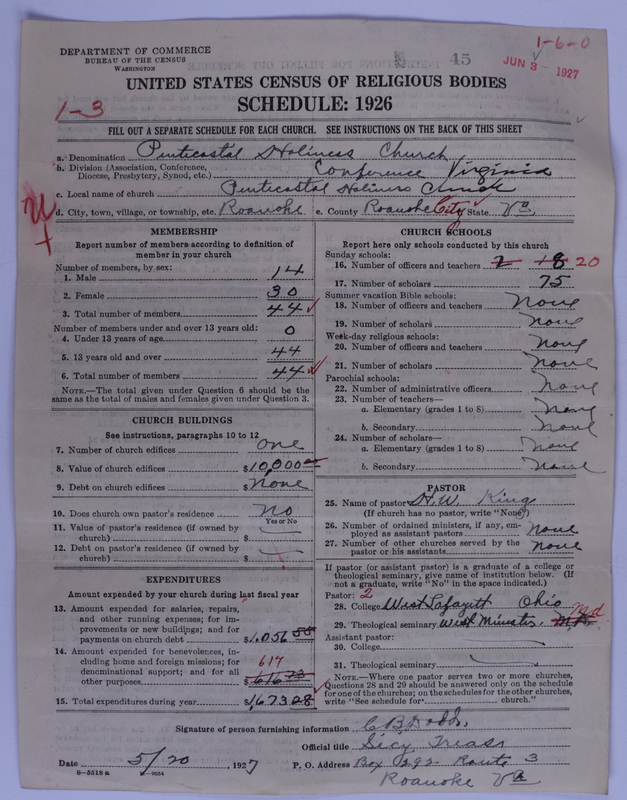 1-6-0
45
JUN 3 - 1927
DEPARTMENT OF COMMERCE
BUREAU OF THE CENSUS
WASHINGTON
UNITED STATES CENSUS OF RELIGIOUS BODIES
SCHEDULE: 1926
1-3
FILL OUT A SEPARATE SCHEDULE FOR EACH CHURCH. SEE INSTRUCTIONS ON THE BACK OF THIS SHEET
a. Denomination Pentecostal Holiness Church
b. Division (Association, Conference, Diocese, Presbytery, Synod, etc.) Conference Virginia
c. Local name of church Pentecostal Holiness Church
d. City, town, village, or township, etc. Roanoke e. County Roanoke City State Va.
MEMBERSHIP
Report number of members according to definition of
member in your church
Number of members, by sex:
1. Male 14
2. Female 30
3. Total number of members 44
Number of members under and over 13 years old:
4. Under 13 years of age 0
5. 13 years old and over 44
6. Total number of members 44
NOTE.—The total given under Question 6 should be the
same as the total of males and females given under Question 3.
CHURCH BUILDINGS
See instructions, paragraphs 10 to 12
7. Number of church edifices one
8. Value of church edifices $10,000
9. Debt on church edifices $ None
10. Does church own pastor's residence No
Yes or No
11. Value of pastor's residence (if owned by
church) $
12. Debt on pastor's residence (if owned by
church) $
EXPENDITURES
Amount expended by your church during last fiscal year
13. Amount expended for salaries, repairs,
and other running expenses; for im-
provements or new buildings; and for
payments on church debt $1,056 55
14. Amount expended for benevolences, in-
cluding home and foreign missions; for
denominational support; and for all
617
other purposes $616 73
15. Total expenditures during year $1,673 28
CHURCH SCHOOLS
Report here only schools conducted by this church
Sunday schools:
16. Number of officers and teachers 2 18 20
17. Number of scholars 75
Summer vacation Bible schools:
18. Number of officers and teachers None
19. Number of scholars None
Week-day religious schools:
20. Number of officers and teachers None
21. Number of scholars None
Parochial schools:
22. Number of administrative officers None
23. Number of teachers—
a. Elementary (grades 1 to 8) None
b. Secondary None
24. Number of scholars—
a. Elementary (grades 1 to 8) None
b. Secondary None
PASTOR
25. Name of pastor H. W. King
(If church has no pastor, write "None")
26. Number of ordained ministers, if any, em-
ployed as assistant pastors None
27. Number of other churches served by the
pastor or his assistants None
If pastor (or assistant pastor) is a graduate of a college or
theological seminary, give name of institution below. (If
not a graduate, write "No" in the space indicated.)
Pastor: 2
28. College West Lafayitt Ohio
29. Theological seminary West Minster, Md
Assistant pastor:
30. College
31. Theological seminary
NOTE.—Where one pastor serves two or more churches,
Questions 28 and 29 should be answered only on the schedule
for one of the churches; on the schedules for the other churches,
write "See schedule for church."
Signature of person furnishing information C B Dodd,
Official title Secy Treas
Date 5/20, 1927 P. O. Address Box 292 Route 3
8—5518 a
Roanoke Va